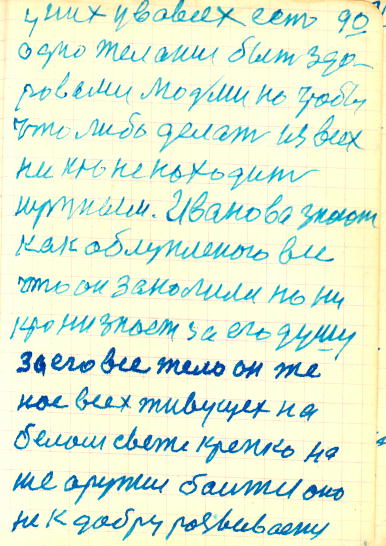 у них у вавсех есть
90
одно желании быть здо-
ровыми людми но чтобы
что либо делат из всех
ни кто не находит
нужным. Иванова знают
как облупленого все
что он законили но ни
кто низнает за его душу
за его все тело он же
нас всех живущех на
белом свете крепко на
ше оружии боитсы оно
не к добру розвиваему